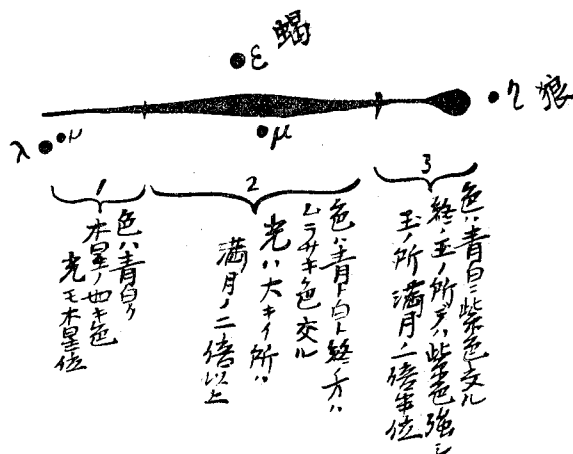 ε 蝎
η 狼
λ μ
μ
1
2
3
色ハ青白ク
木星ノ如キ色
光モ木星位
色ハ青ト白ト終ノ方ハ
ムラサキ色交ル
光ハ大キイ所ハ
満月ノ二倍以上
色ハ青白ニ紫色交ル
終ノ玉ノ所デハ紫色強シ
玉ノ所満月ノ一倍半位